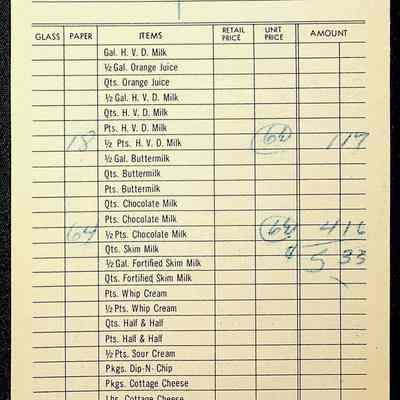 GLASS PAPER ITEMS RETAIL PRICE UNIT PRICE AMOUNT
Gal. H. V. D. Milk
½ Gal. Orange Juice
Qts. Orange Juice
½ Gal. H. V. D. Milk
Qts. H. V. D. Milk
Pts. H. V. D. Milk
18 ½ Pts. H. V. D. Milk 6½ 1 17
½ Gal. Buttermilk
Qts. Buttermilk
Pts. Buttermilk
Qts. Chocolate Milk
Pts. Chocolate Milk
64 ½ Pts. Chocolate Milk 6½ 4 16
Qts. Skim Milk $ 5 33
½ Gal. Fortified Skim Milk
Qts. Fortified Skim Milk
Pts. Whip Cream
½ Pts. Whip Cream
Qts. Half & Half
Pts. Half & Half
½ Pts. Sour Cream
Pkgs. Dip-N-Chip
Pkgs. Cottage Cheese
Lbs. Cottage Cheese